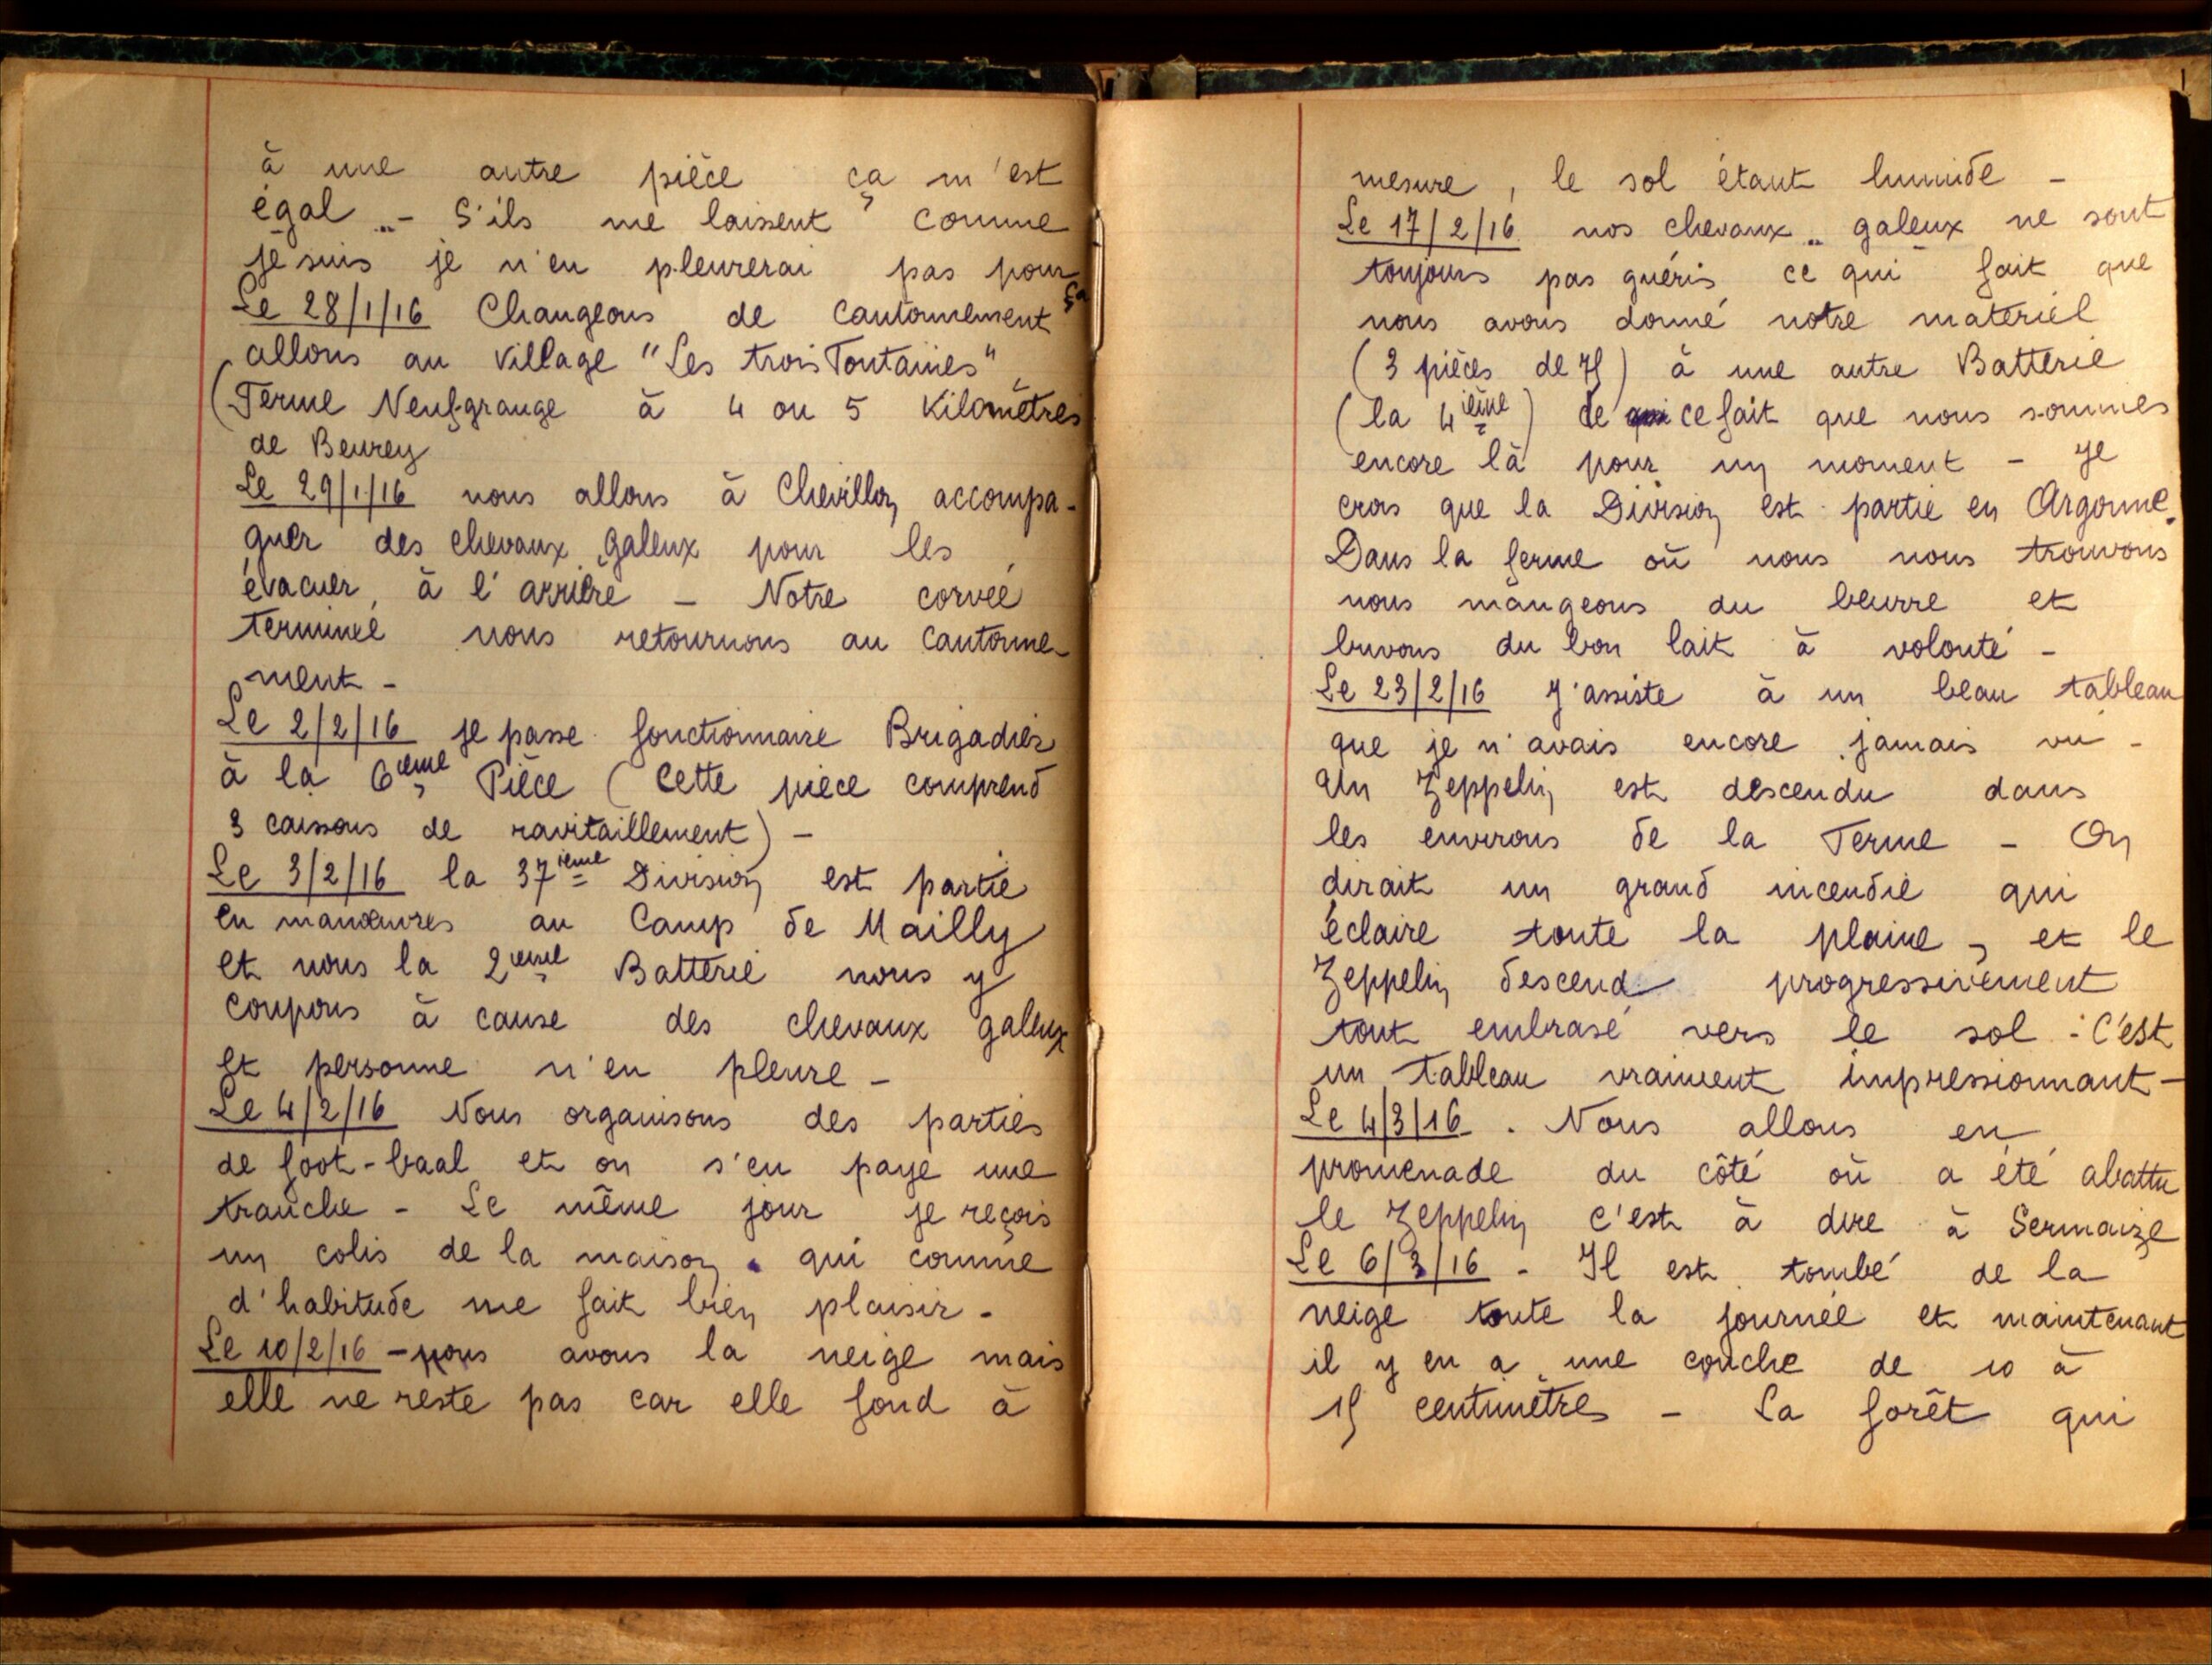 à une autre pièce ça m'est
égal - S'ils me laissent comme
je suis je n'en pleurerai pas pour ça
Le 28/1/16 Changeons de cantonnement
allons au village "Les trois Fontaines"
(Ferme Neuf-grange à 4 ou 5 Kilomètres
de Beurey
Le 29/1/16 nous allons à Chevillon accompa-
gner des chevaux galeux pour les
évacuer, à l'arrière - Notre corvée
terminée nous retournons au cantonne-
ment -
Le 2/2/16 je passe fonctionnaire Brigadier
à la 6ième Pièce (cette pièce comprend
3 caissons de ravitaillement) -
Le 3/2/16 la 37ième Division est partie
en manœuvres au Camp de Mailly
et nous la 2ème Batterie nous y
coupons à cause des chevaux galeux
et personne n'en pleure -
Le 4/2/16 Nous organisons des parties
de foot-baal et on s'en paye une
tranche - Le même jour je reçois
un colis de la maison qui comme
d'habitude me fait bien plaisir -
Le 10/2/16 - nous avons la neige mais
elle ne reste pas car elle fond à
mesure, le sol étant humide -
Le 17/2/16 nos chevaux galeux ne sont
toujours pas guéris ce qui fait que
nous avons donné notre matériel
(3 pièces de 75) à une autre Batterie
(la 4ième) de ce fait que nous sommes
encore là pour un moment - Je
crois que la Division est partie en Argonne.
Dans la ferme où nous nous trouvons
nous mangeons du beurre et
buvons du bon lait à volonté -
Le 23/2/16 J'assiste à un beau tableau
que je n'avais encore jamais vu -
Un Zeppelin est descendu dans
les environs de la Ferme - On
dirait un grand incendie qui
éclaire toute la plaine, et le
Zeppelin descend progressivement
tout embrasé vers le sol - C'est
un tableau vraiment impressionnant -
Le 4/3/16 . Nous allons en
promenade du côté où a été abattu
le Zeppelin c'est à dire à Sermaize
Le 6/3/16 - Il est tombé de la
neige toute la journée et maintenant
il y en a une couche de 10 à
15 centimètres - La forêt qui